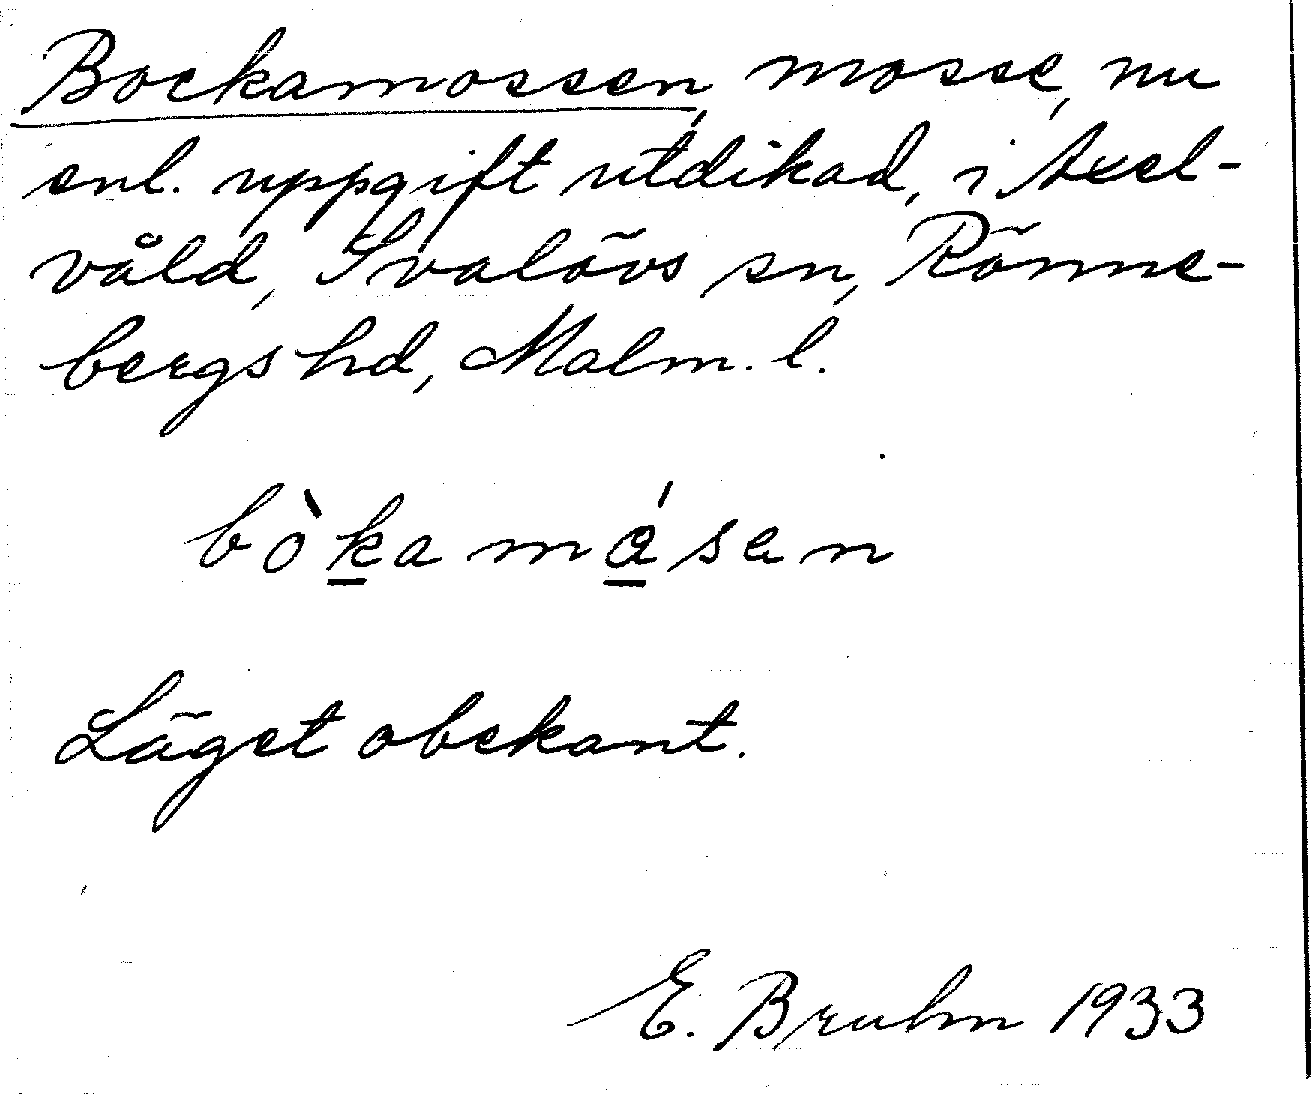 Bockamossen, mosse, nu
enl. uppgift utdikad, i Axel-
våld, Svalövs sn, Rönne-
bergs hd, Malm. l.
bòkamásen
Läget obekant.
E. Bruhn 1933